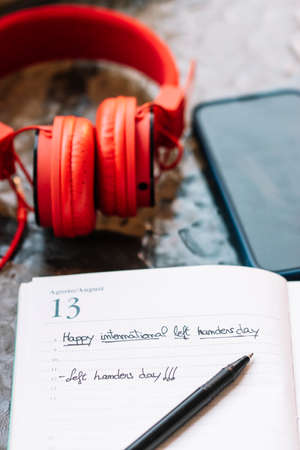 Agosto/August
13
Happy international left handers day
-Left handers day!!!